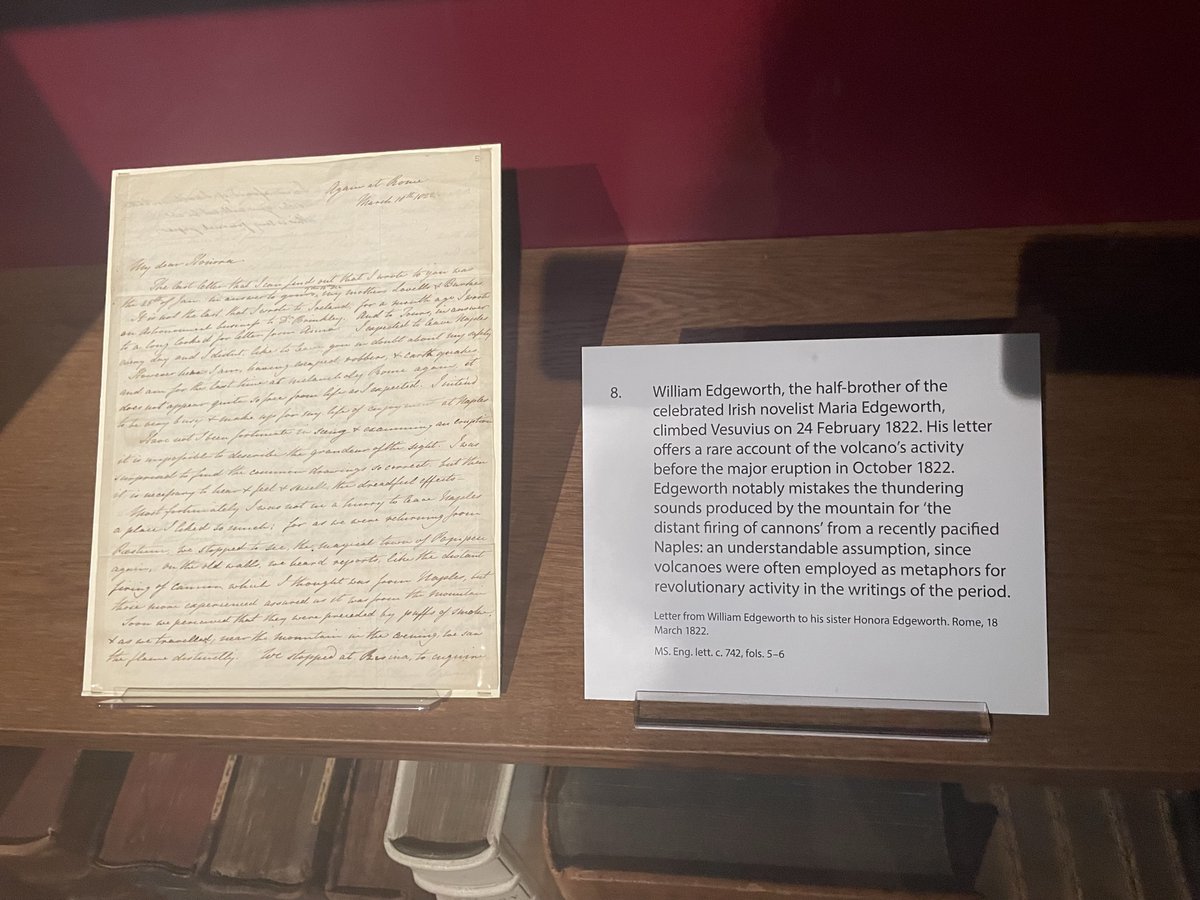 Again at Rome
March 18th 1822
My dear Honora
The last letter that I can find out that I wrote to you was
the 25th of Jan. in answer to yours, my mothers Lovells &
It is not the last that I wrote to Ireland, for a month ago I wrote
an Astronomical business to Dr Brinkley. And to in answer
to a long looked for letter from I expected to leave Naples
every day and I didnt like to leave you in doubt about my safety
However here I am, having escaped robbers, & earthquakes
and am for the last time at melancholy Rome again it
does not appear quite so free from life as I expected. I intend
to be very busy & make up for my life of enjoyment at Naples
Have not I been fortunate in seeing & examining an eruption
it is impossible to describe the grandeur of the sight. I was
surprised to find the common drawings so correct, but then
it is necessary to hear & feel & smell the dreadful effects.
Most fortunately I was not in a hurry to leave Naples
a place I liked so much; for as we were returning from
Pæstum, we stopped to see, the magical town of Pompeii
again, on the old walls, we heard reports, like the distant
firing of cannon which I thought was from Naples, but
those more experienced assured us it was from the mountain
Soon we perceived that they were preceded by puffs of smoke
& as we travelled, near the mountain in the evening, we saw
the flame distinctly. We stopped at Resina, to enquire
8. William Edgeworth, the half-brother of the
celebrated Irish novelist Maria Edgeworth,
climbed Vesuvius on 24 February 1822. His letter
offers a rare account of the volcano’s activity
before the major eruption in October 1822.
Edgeworth notably mistakes the thundering
sounds produced by the mountain for ‘the
distant firing of cannons’ from a recently pacified
Naples: an understandable assumption, since
volcanoes were often employed as metaphors for
revolutionary activity in the writings of the period.
Letter from William Edgeworth to his sister Honora Edgeworth. Rome, 18
March 1822.
MS. Eng. lett. c. 742, fols. 5–6